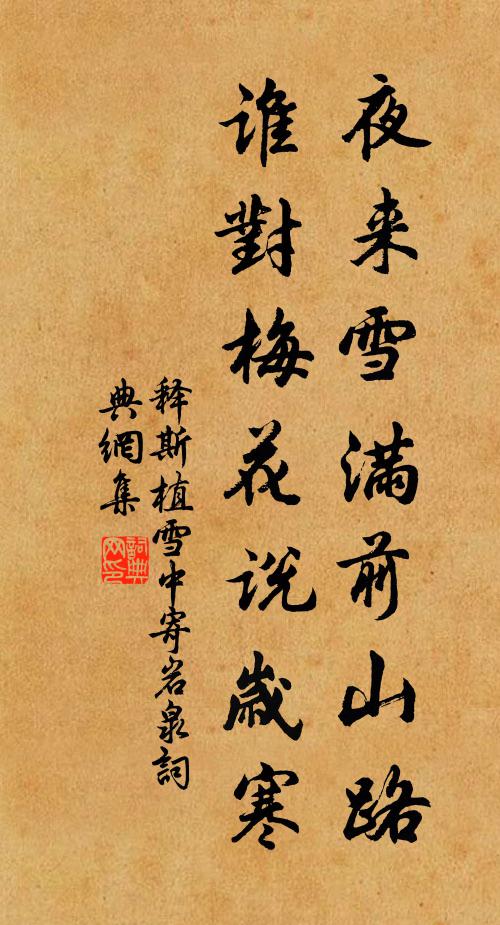 夜来雪满前山路
谁對梅花说歳寒
释斯植雪中寄岩泉詞
典網集
詞典网印